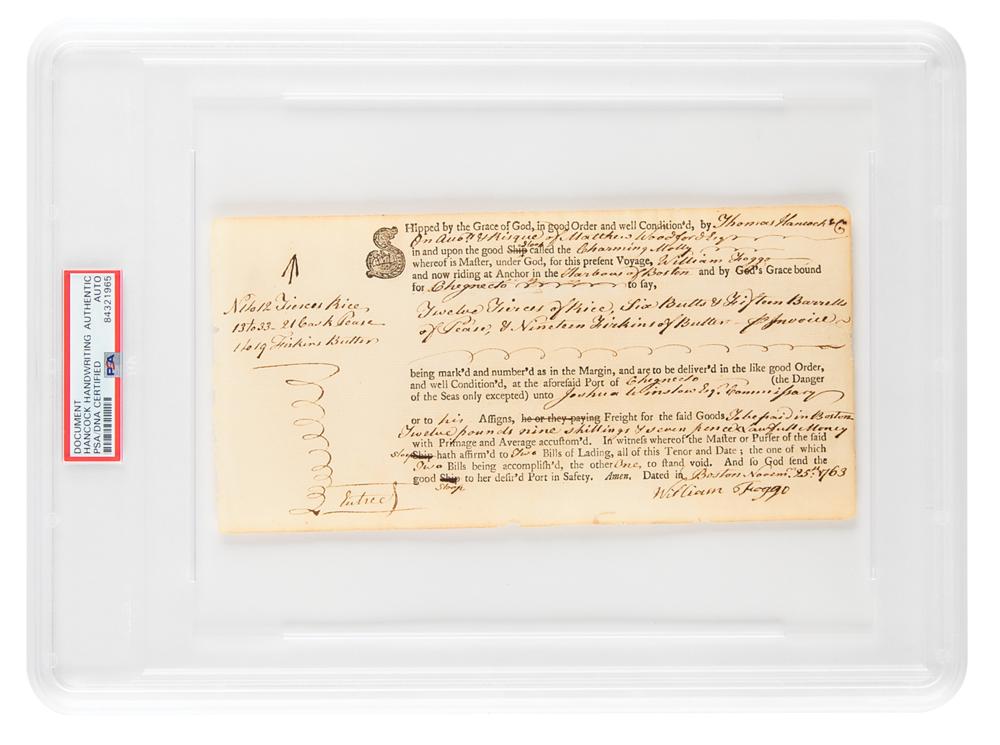 DOCUMENT
HANCOCK HANDWRITING AUTHENTIC
PSA/DNA CERTIFIED AUTO
84321965
PSA
SHipped by the Grace of God, in good Order and well Condition'd, by Thomas Hancock & Co
On Accott & Risque of Matthew Woodford Esqr
in and upon the good Ship Sloop called the Charming Molly
whereof is Master, under God, for this present Voyage, William Foggo
and now riding at Anchor in the Harbour of Boston and by God's Grace bound
for Chegnecto to say,
Twelve Tierces of Rice, Six Butts & Fifteen Barrells
of Pease, & Nineteen Firkins of Butter - pr Invoice
No 1 to 12 Tierces Rice
13 to 33 - 21 Cask Pease
1 to 19 Firkins Butter
being mark'd and number'd as in the Margin, and are to be deliver'd in the like good Order,
and well Condition'd, at the aforesaid Port of Chegnecto (the Danger
of the Seas only excepted) unto Joshua Winslow Esq. Commissary
or to his Assigns, he or they paying Freight for the said Goods, To be paid in Boston
Twelve pounds nine shillings & seven pence Lawfull Money
with Primage and Average accustom'd. In witness whereof the Master or Purser of the said
Sloop Ship hath affirm'd to Two Bills of Lading, all of this Tenor and Date; the one of which
Two Bills being accomplish'd, the other One, to stand void. And so God send the
good Ship Sloop to her desir'd Port in Safety. Amen. Dated in Boston Novem. 25th 1763
William Foggo